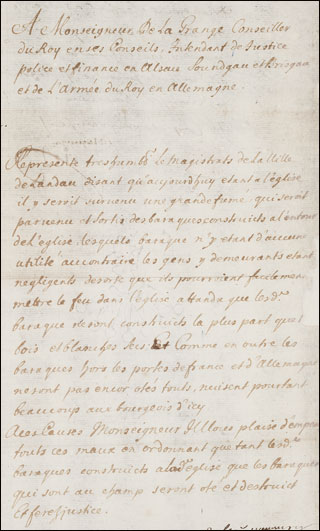 A Monseigneur De La Grange Conseiller
du Roy en ses Conseils, Intendant de Justice
police et finance en Alsace Soundgau et Brisgau
et de L'Armée du Roy en Allemagne.
Represente tres humbl.t le magistrats de la Ville
de Landau disant qu'aujourdhuy etant a l'eglise
il y seroit survenu une grande fumé, qui seroit
parvenu et sortis des baraques construicts a l'entour
de l'eglise, lesquels baraque n'y etant d'aucune
utilité au contraire les gens y demeurants etant
negligents de sorte que ils pourroient facilement
mettre le feu dans l'eglise attendu que lesd.
baraque seront construicts la plus part que
bois et blanches secs et Comme en outre les
baraques hors les portes de france et d'Allemagne
ne sont pas encor otés touts, nuisent pourtant
beaucoup aux bourgeois d'icy
A ces Causes Monseigneur Il Vous plaise d'
touts ces maux en ordonnant que tant lesd.
baraques construicts a lad. eglise que les baraques
qui sont au champ seront oté et destruict
et feres justice.